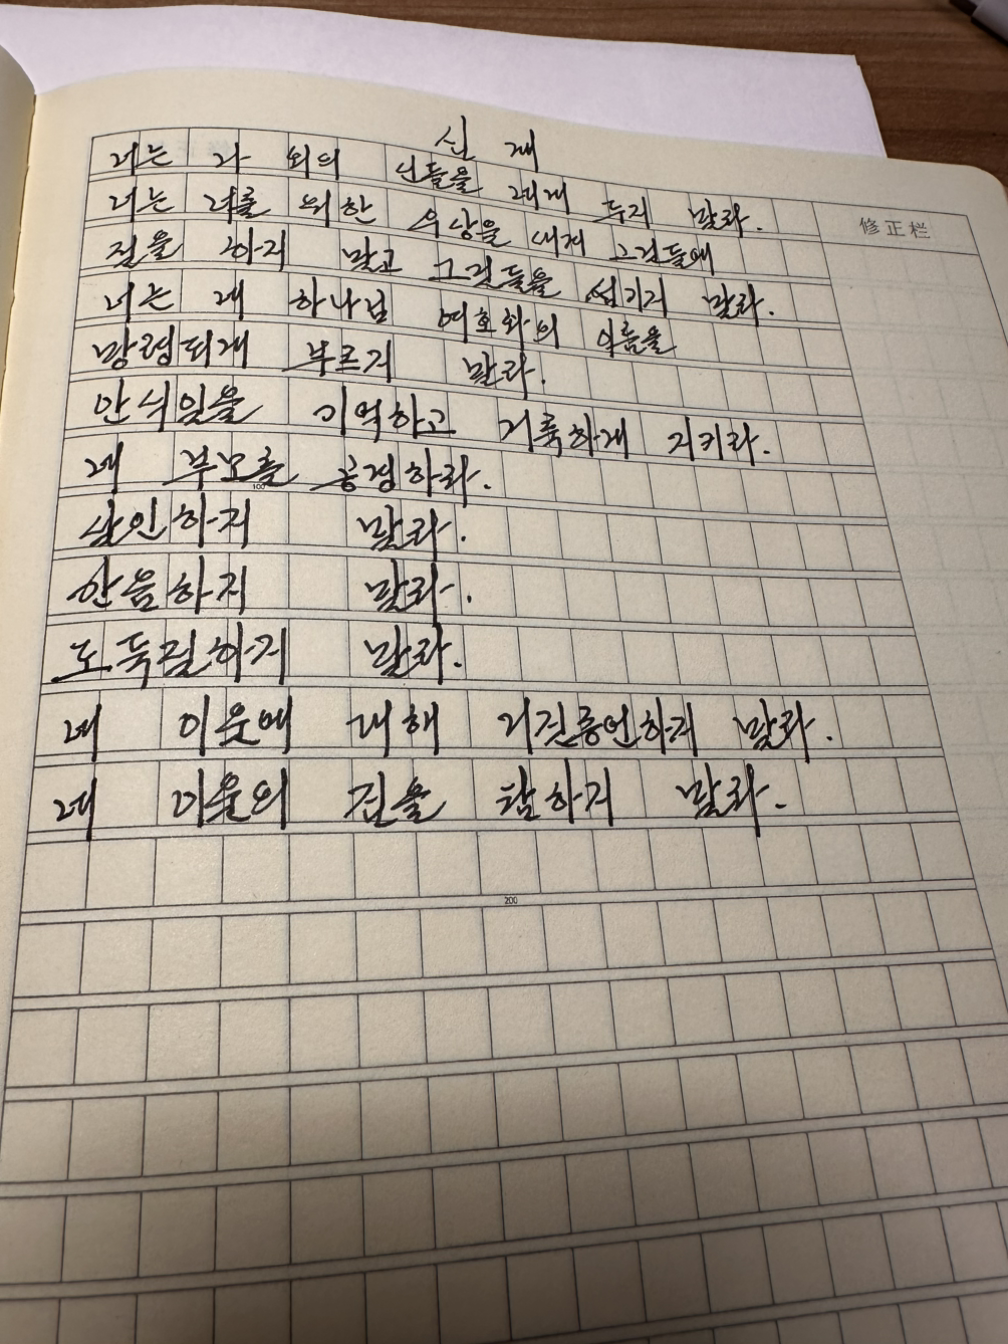 신 계
너는 나 외의 신들을 네게 두지 말라.
修正栏
너는 너를 위한 우상을 새겨 그것들에
절을 하지 말고 그것들을 섬기지 말라.
너는 네 하나님 여호와의 이름을
망령되게 부르지 말라.
안식일을 기억하고 거룩하게 지키라.
네 부모를 공경하라.
100
살인하지 말라.
간음하지 말라.
도둑질하지 말라.
네 이웃에 대해 거짓증언하지 말라.
네 이웃의 것을 탐하지 말라.
200